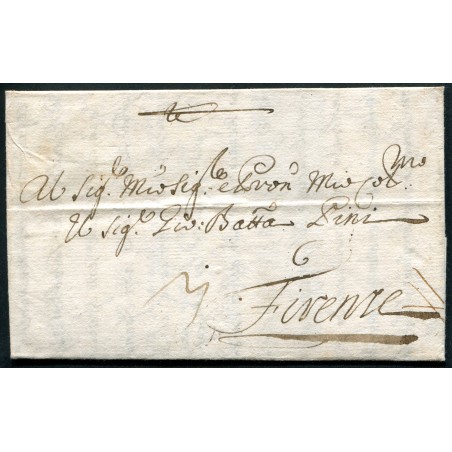 Al Sig:re Mio Sig:re e Pron Mio Col:mo
Il Sig:re Gio: Batta Pini
6
Firenze